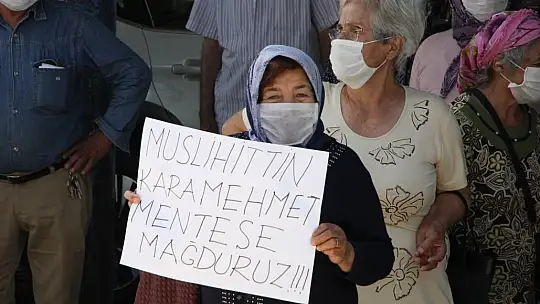 MUSLIHITTIN
KARAMEHMET
MENTEŞE
MAĞDURUZ!!!